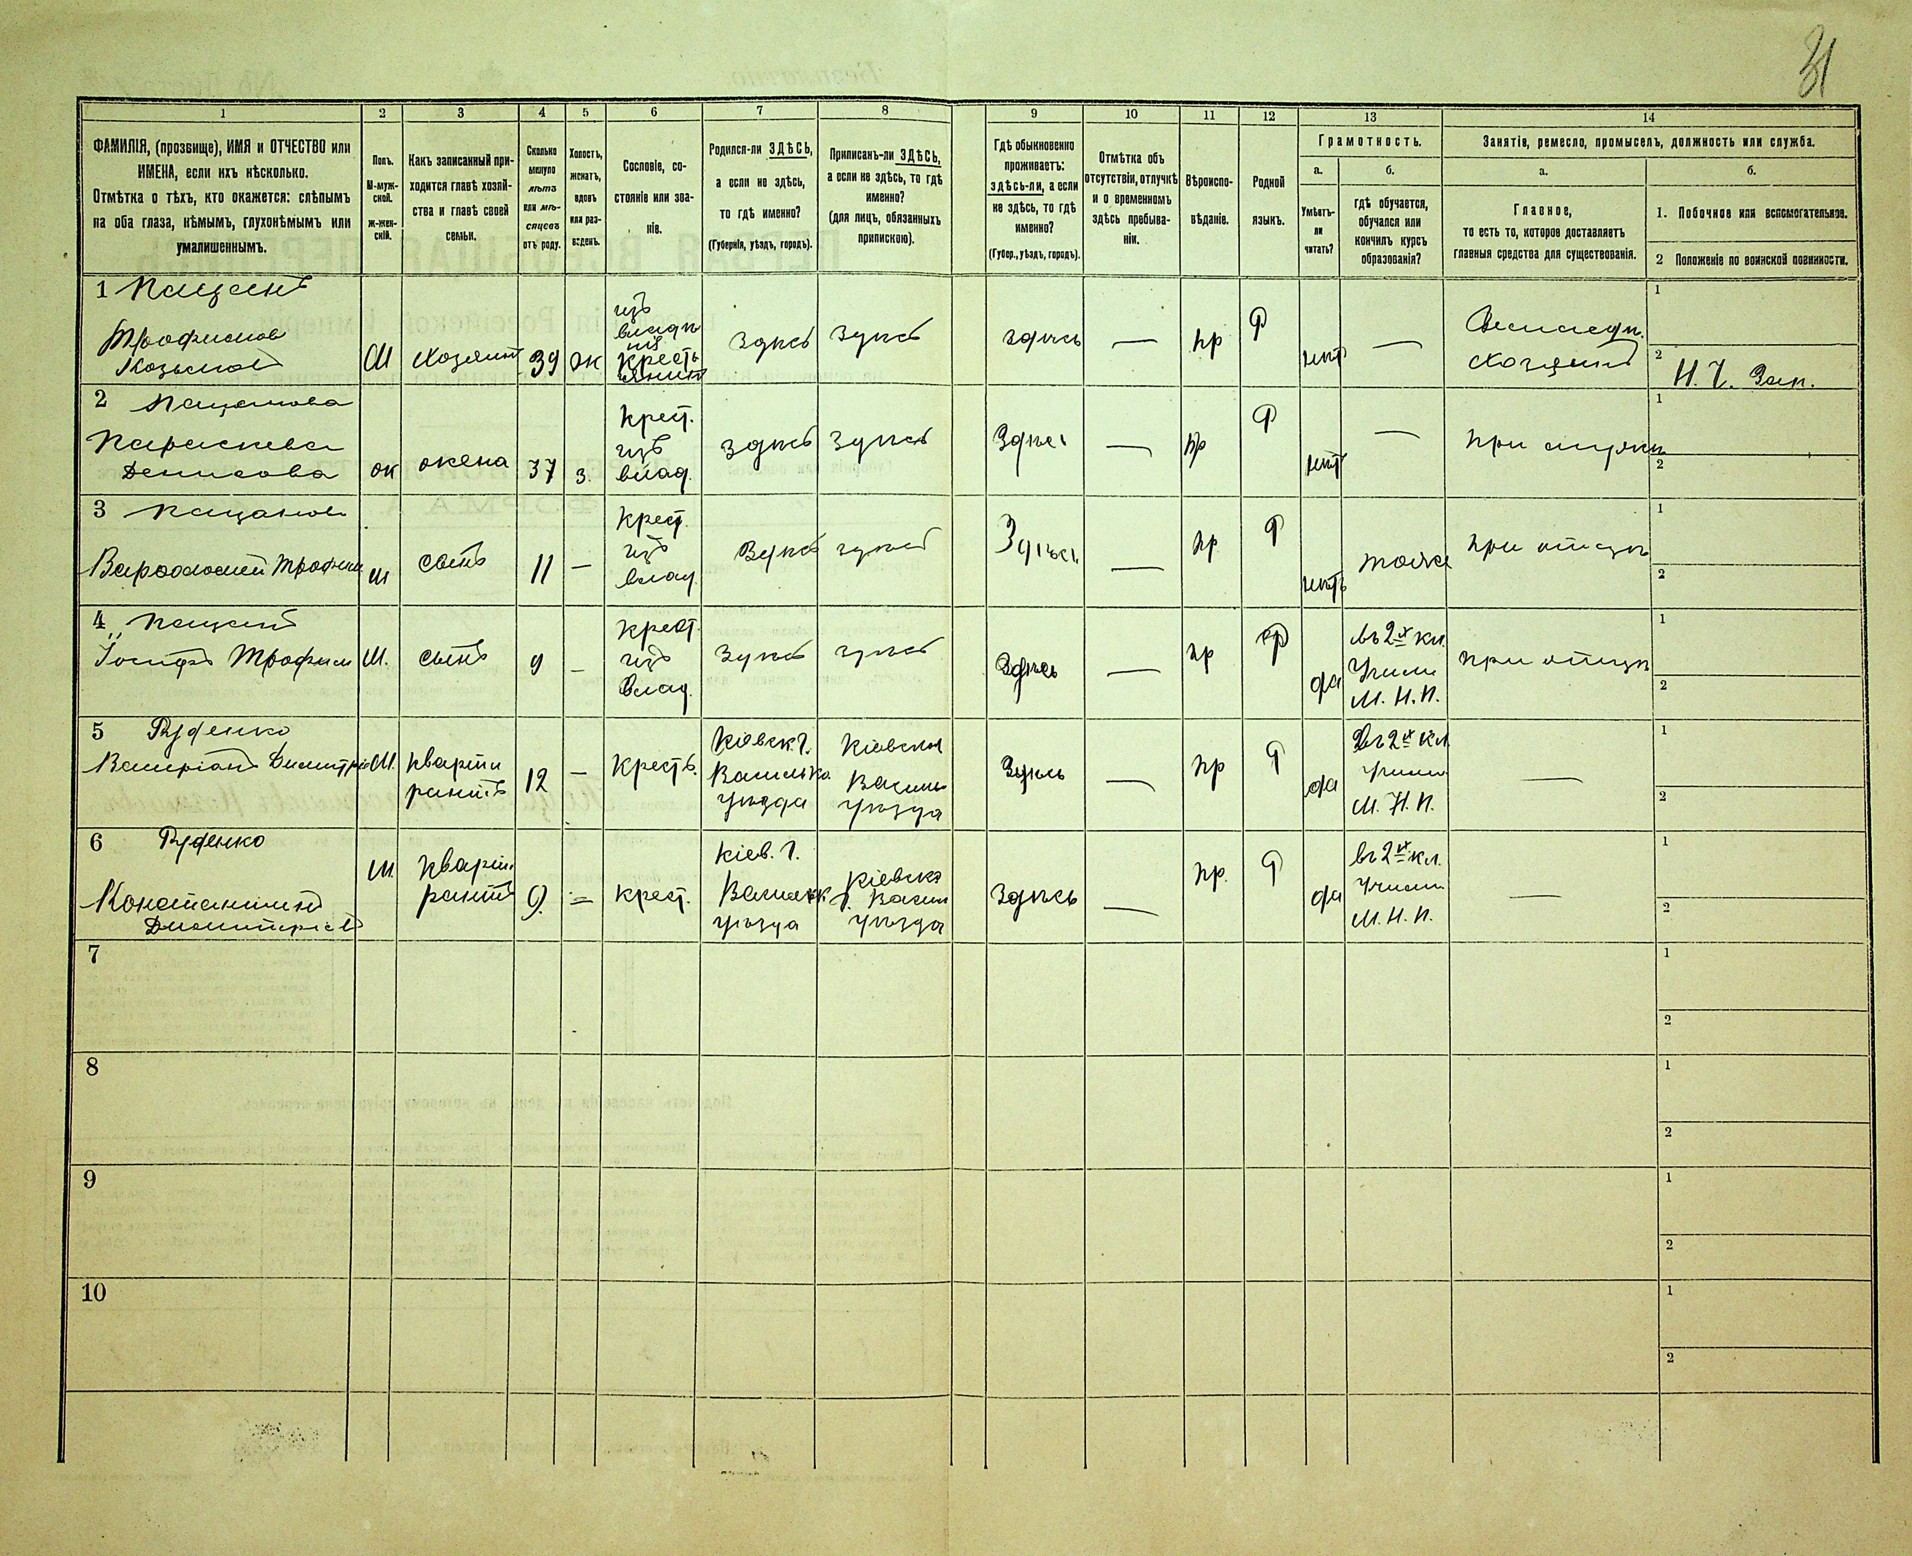 31
1 2 3 4 5 6 7 8 9 10 11 12 13 14
ФАМИЛІЯ, (прозвище), ИМЯ и ОТЧЕСТВО или
ИМЕНА, если ихъ нѣсколько.
Отмѣтка о тѣхъ, кто окажется: слѣпымъ
на оба глаза, нѣмымъ, глухонѣмымъ или
умалишеннымъ.
Полъ.
М-муж-
ской.
Ж-жен-
скій.
Какъ записанный при-
ходится главѣ хозяй-
ства и главѣ своей
семьи.
Сколько
минуло
лѣтъ
или мѣ-
сяцевъ
отъ роду.
Холостъ,
женатъ,
вдовъ
или раз-
веденъ.
Сословіе, со-
стояніе или зва-
ніе.
Родился-ли ЗДѢСЬ,
а если не здѣсь,
то гдѣ именно?
(Губернія, уѣздъ, городъ).
Приписанъ-ли ЗДѢСЬ,
а если не здѣсь, то гдѣ
именно?
(для лицъ, обязанныхъ
припискою).
Гдѣ обыкновенно
проживаетъ:
здѣсь-ли, а если
не здѣсь, то гдѣ
именно?
(Губер., уѣздъ, городъ).
Отмѣтка объ
отсутствіи, отлучкѣ
и о временномъ
здѣсь пребыва-
ніи.
Вѣроиспо-
вѣданіе.
Родной
языкъ.
Грамотность.
а.
Умѣетъ-
ли
читать?
б.
гдѣ обучается,
обучался или
кончилъ курсъ
образованія?
Занятіе, ремесло, промыселъ, должность или служба.
а.
Главное,
то есть то, которое доставляетъ
главныя средства для существованія.
б.
1. Побочное или вспомогательное.
2 Положеніе по воинской повинности.
1
Трофимъ
Козьмовъ
М
хозяинъ
39
ж
изъ
владѣ
крестья
янинъ
здѣсь
здѣсь
здѣсь
—
пр
Р
нѣтъ
—
хозяинъ
1
2
Н. Ч. Зап.
2
Параскева
Денисова
ж
жена
37
з.
крест.
изъ
влад.
здѣсь
здѣсь
Здѣсь
—
пр
Р
нѣтъ
—
при мужѣ
1
2
3
Варѳоломей Трофим
м
сынъ
11
—
крест.
изъ
влад.
Здѣсь
здѣсь
Здѣсь
—
пр
Р
нѣтъ
тоже
при отцѣ
1
2
4
Іосифъ Трофим
М.
сынъ
9
—
крест.
изъ
Влад.
Здѣсь
здѣсь
Здѣсь
—
пр
Р
да
въ 2й кл.
Учили
М. Н. П.
при отцѣ
1
2
5 Руденко
Валеріанъ Димитріе
М.
кварти
рантъ
12
—
крест.
Кіевск. Г.
Васильк.
уѣзда
Кіевской
Василь
уѣзда
Здѣсь
—
пр
Р
да
Въ 2й кл
Учили
М. Н. П.
—
1
2
6 Руденко
Константинъ
Димитріев
М.
кварти
рантъ
9.
=
крест.
Кіев. Г.
Васильк
уѣзда
Кіевск.
г. Васил
уѣзда
Здѣсь
—
пр.
Р
да
въ 2й кл.
Учили
М. Н. П.
—
1
2
7
1
2
8
1
2
9
1
2
10
1
2